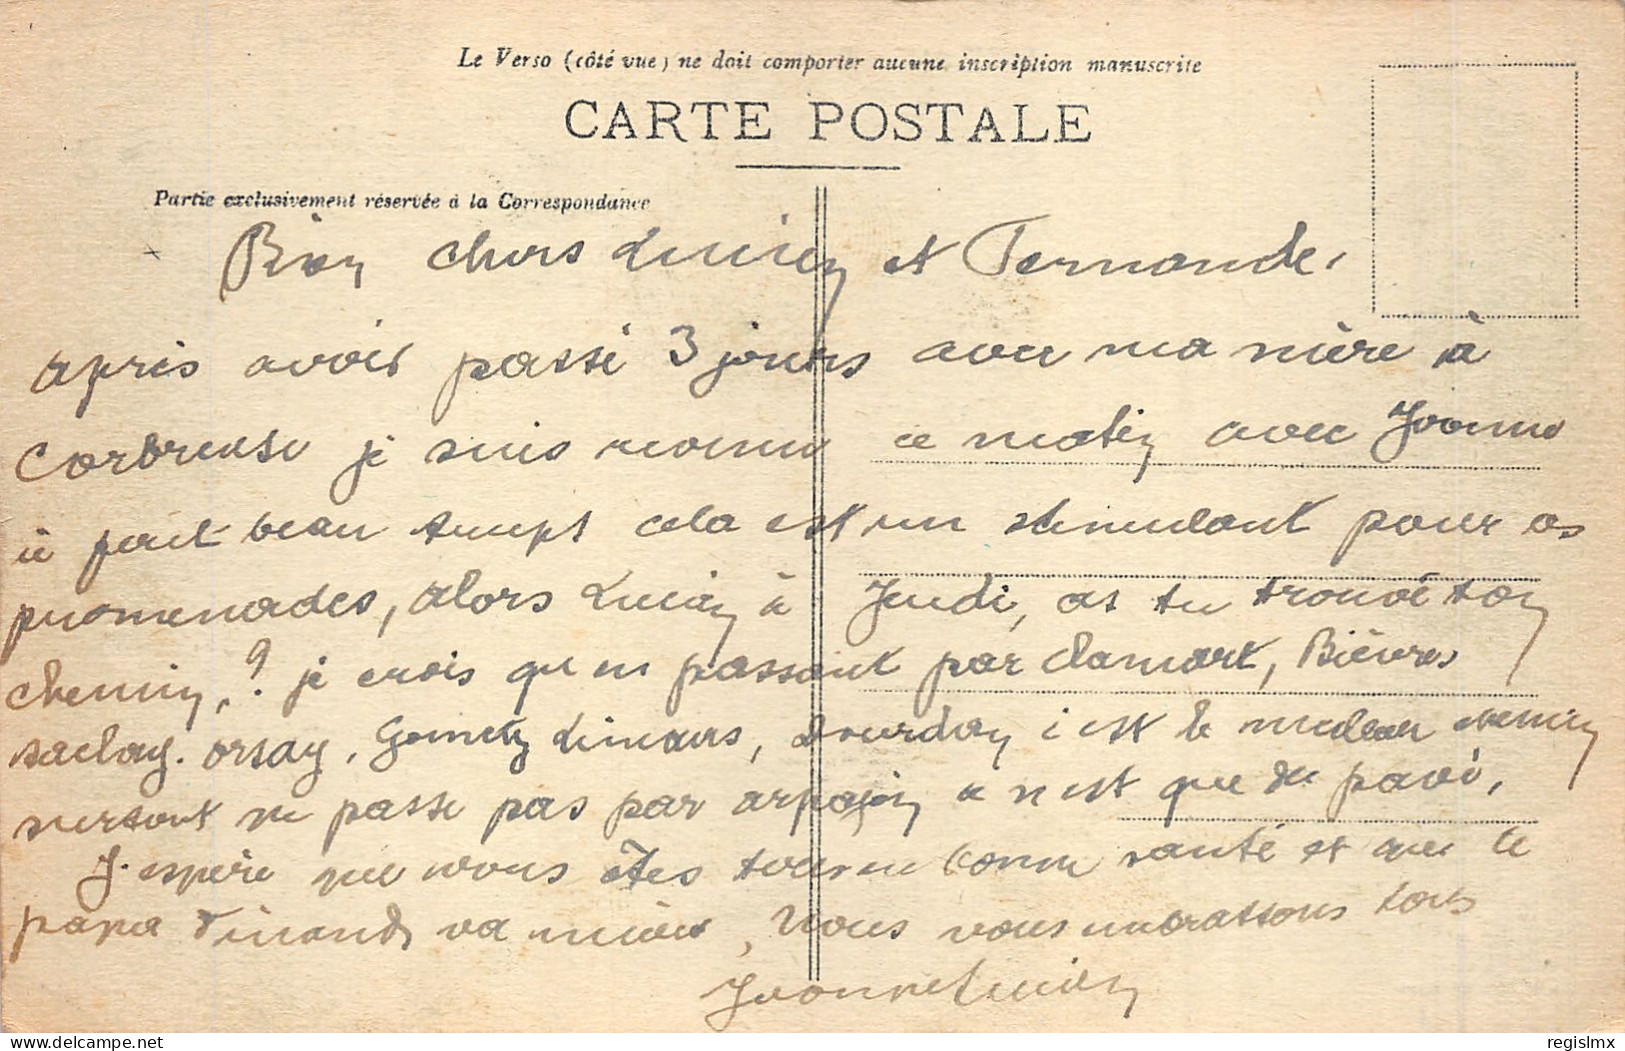 Le Verso (côté vue) ne doit comporter aucune inscription manuscrite
CARTE POSTALE
Partie exclusivement réservée à la Correspondance
Bien chers Lucien et Fernande,
après avoir passé 3 jours avec ma mère à
Corbreuse je suis revenu ce matin avec Yvonne
il fait beau temps cela est un stimulant pour os
promenades, alors Lucien à Jeudi, as tu trouvé ton
chemin,? je crois qu'en passant par Clamart, Bièvres
saclay. orsay, Gometz Limours, Dourdan c'est le meilleur chemin
surtout ne passe pas par arpajon ce n'est que du pavé,
J'espère que vous êtes tous en bonne santé et que le
papa va mieux, Nous vous embrassons tous
Yvonne Lucien
delcampe.net
regislmx